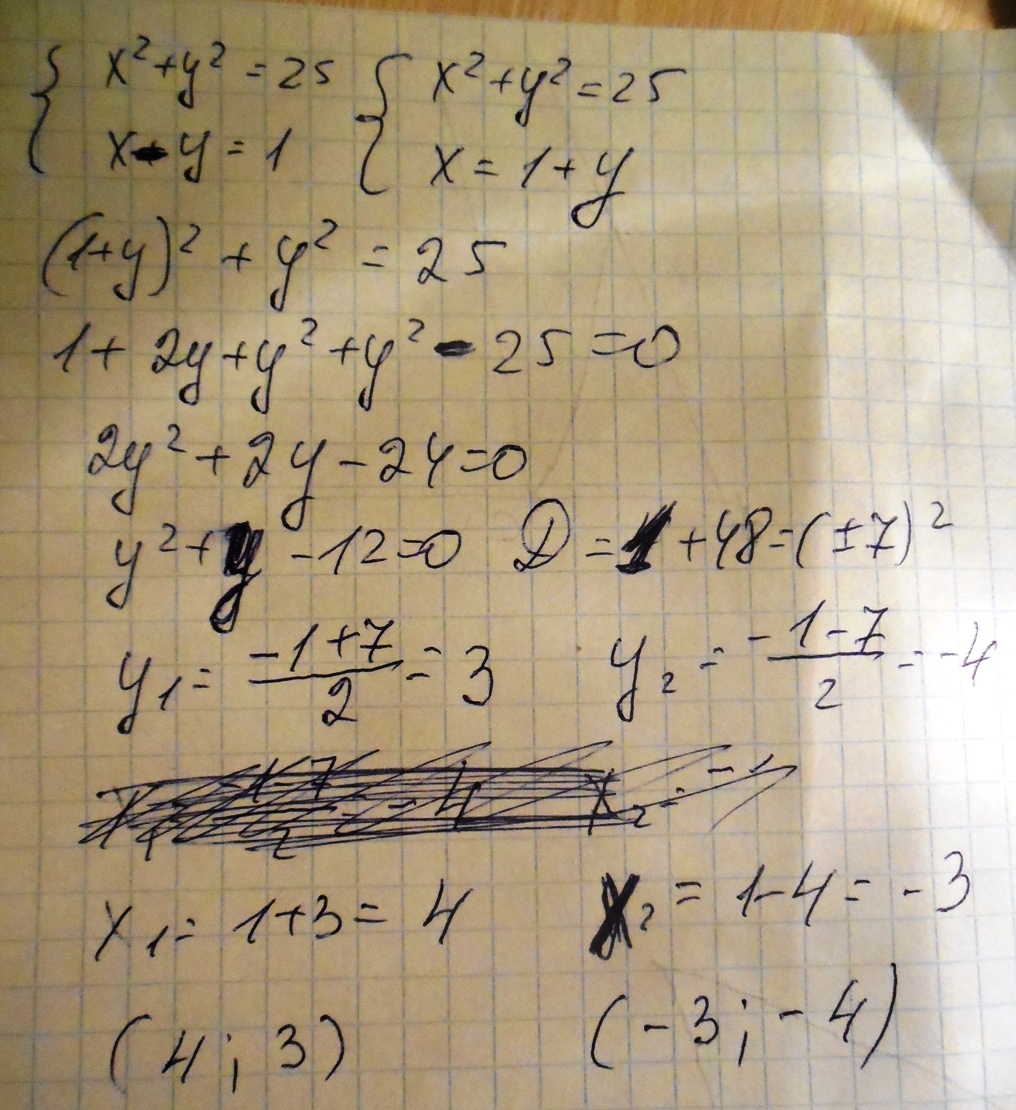 { x² + y² = 25 { x² + y² = 25
x - y = 1 x = 1 + y
(1+y)² + y² = 25
1 + 2y + y² + y² - 25 = 0
2y² + 2y - 24 = 0
y² + y - 12 = 0 D = 1 + 48 = (±7)²
y₁ = (-1+7)/2 = 3 y₂ = (-1-7)/2 = -4
x₁ = 1+3 = 4 x₂ = 1-4 = -3
(4; 3) (-3; -4)